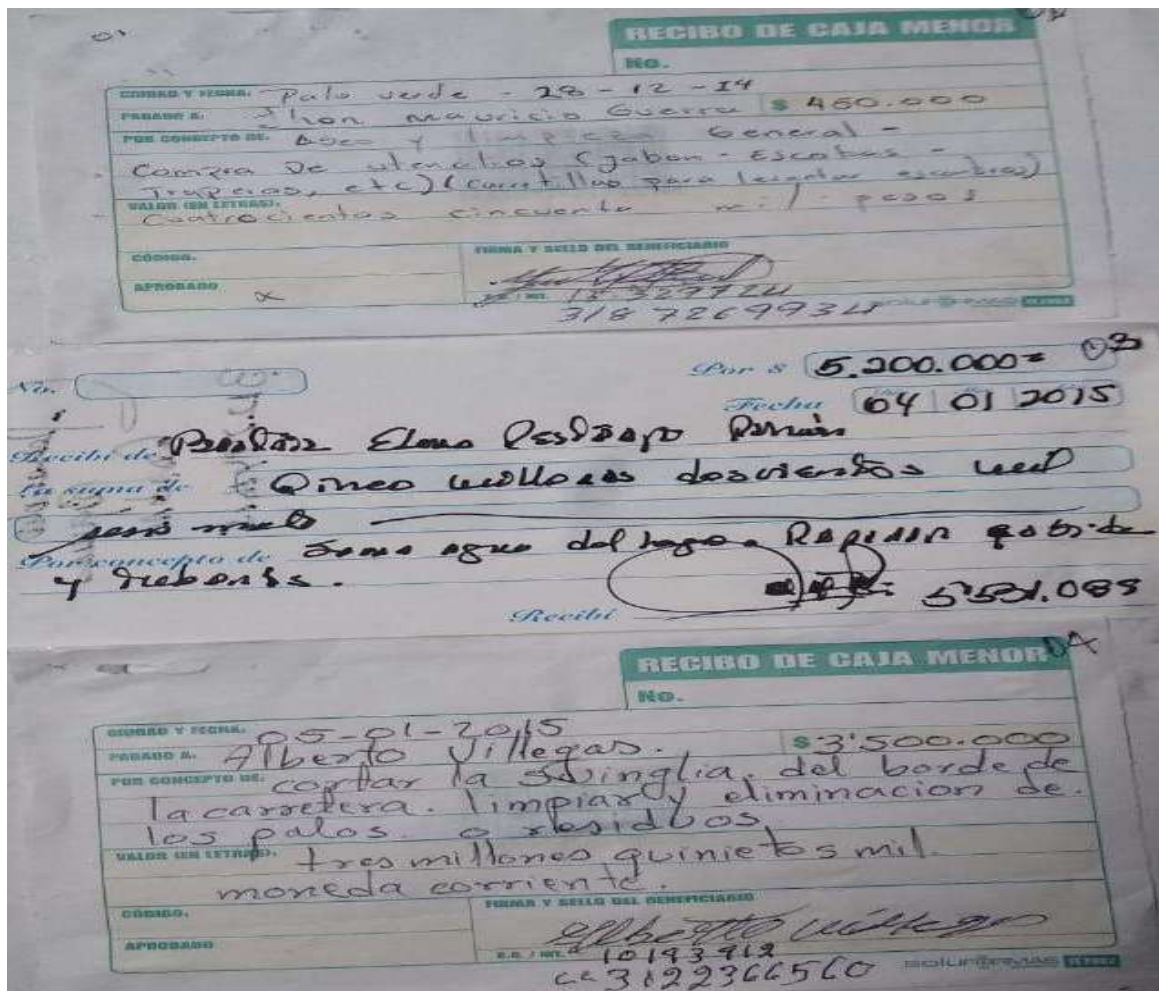 01
02
RECIBO DE CAJA MENOR
No.
CIUDAD Y FECHA. Palo verde - 28 - 12 - 14
PAGADO A. Jhon Mauricio Guerra $ 450.000
POR CONCEPTO DE. Aseo y limpieza General -
Compra De utencilios (jabon - Escobas -
Traperas, etc) (carretillas para levantar escombros)
VALOR (EN LETRAS). Cuatrocientos cincuenta mil pesos
CÓDIGO. FIRMA Y SELLO DEL BENEFICIARIO
APROBADO X
C.C. / NIT.
318 7269934
No. Por $ 5.200.000= 03
Fecha 04 01 2015
Recibí de Elena
La suma de Cinco millones doscientos mil
pesos
Por concepto de agua del lago
y
5'531.088
Recibí
04
RECIBO DE CAJA MENOR
No.
CIUDAD Y FECHA. 05-01-2015
PAGADO A. Alberto Villegas. $ 3'500.000
POR CONCEPTO DE. cortar la swinglia. del borde de
la carretera. limpiar y eliminacion de.
los palos. o residuos
VALOR (EN LETRAS). tres millones quinietos mil.
moneda corriente.
CÓDIGO. FIRMA Y SELLO DEL BENEFICIARIO
Alberto Villegas
APROBADO C.C. / NIT. 10193912
cc 3122366560